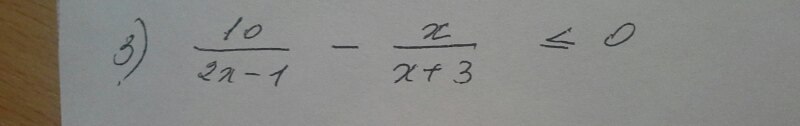 3) 10/(2x-1) - x/(x+3) ≤ 0